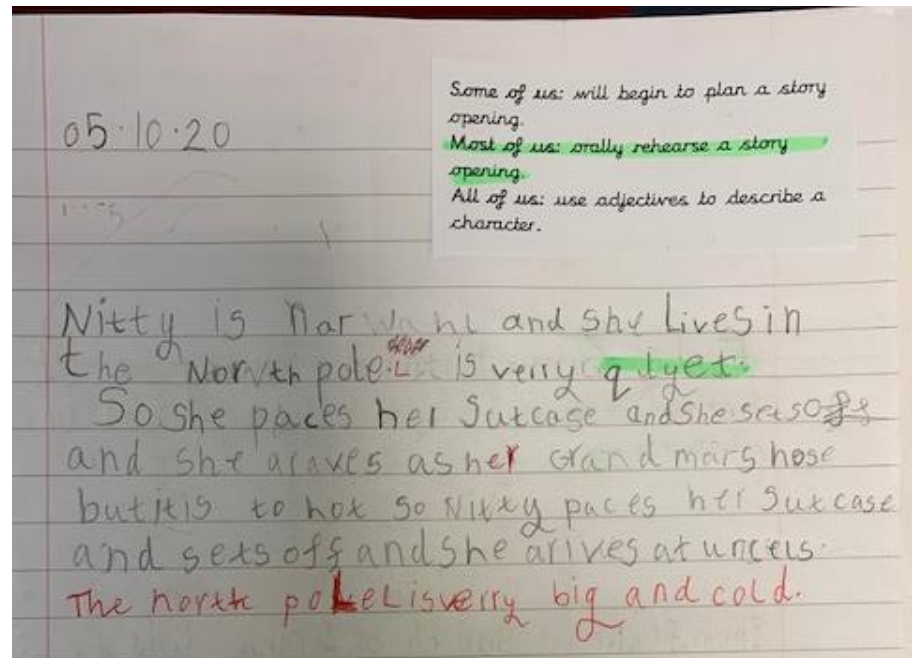 05.10.20
Some of us: will begin to plan a story
opening.
Most of us: orally rehearse a story
opening.
All of us: use adjectives to describe a
character.
Nitty is narwahl and she Lives in
the North pole. It is verry qiyet.
So she paces her Sutcase and She sets off
and she araves as her Grand mars hose
but it is to hot so Nitty paces her Sutcase
and sets off and She arives at uncels.
The north poLeL is verry big and cold.